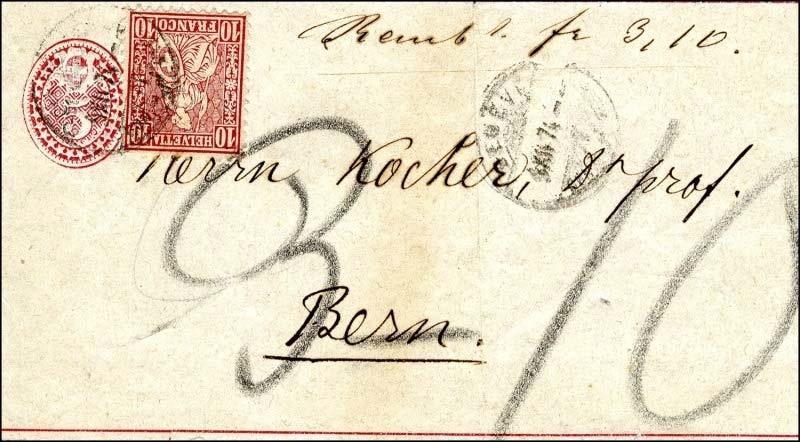 Remb t. fr 3,10.
10 10
HELVETIA
FRANCO
10 10
Herrn Kocher, Dr prof.
3 10
Bern.